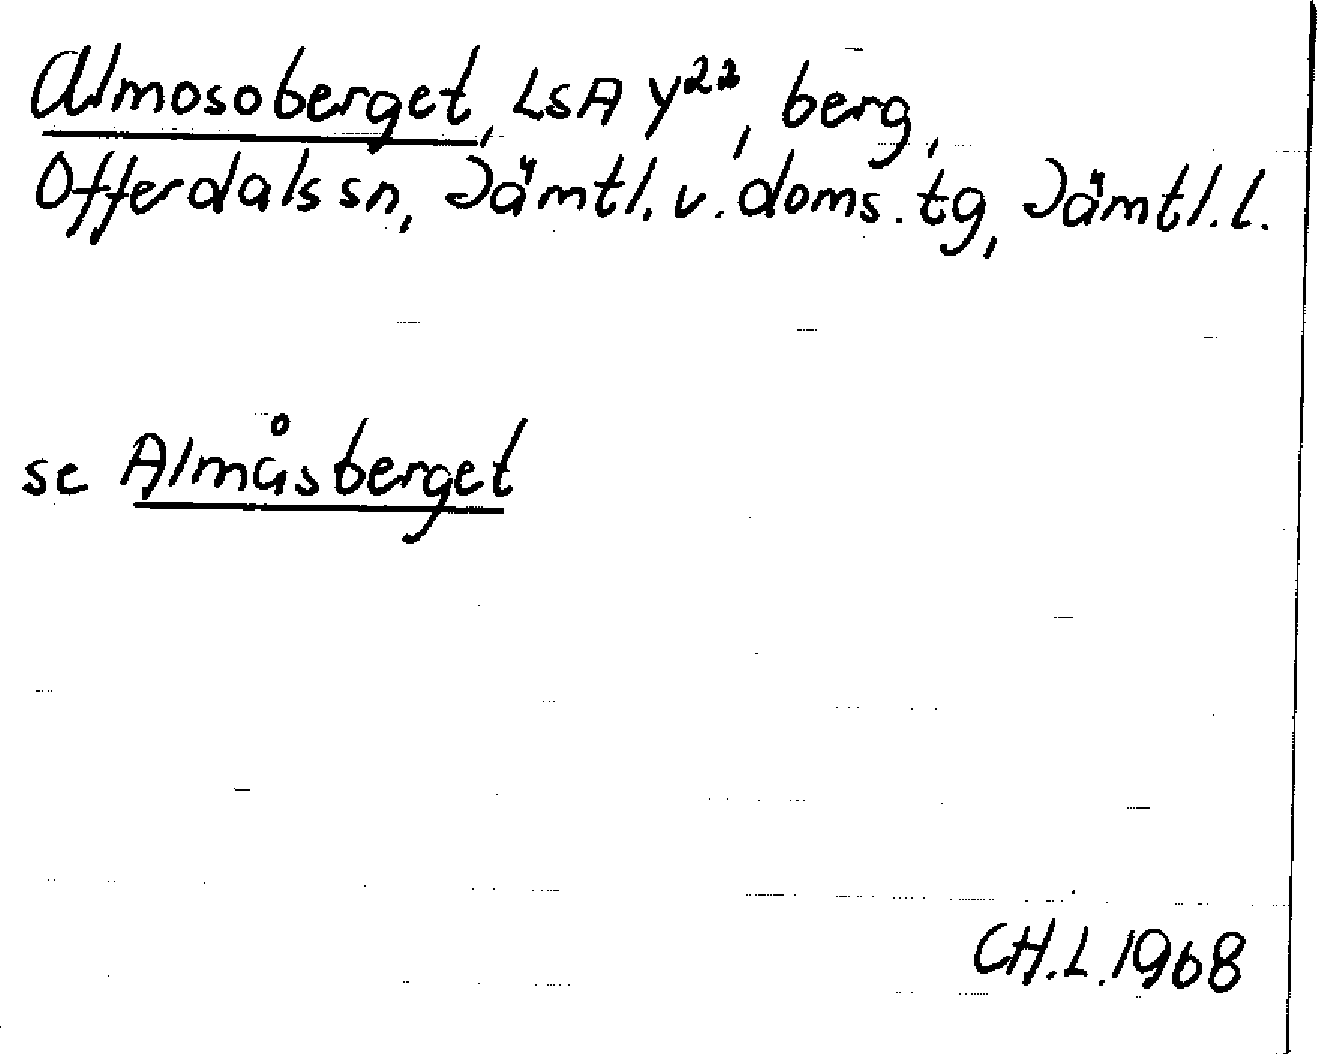 Almosoberget, LSA Y²², berg,
Offerdals sn, Jämtl. v. doms. tg, Jämtl. l.
se Almåsberget
CH.L. 1968